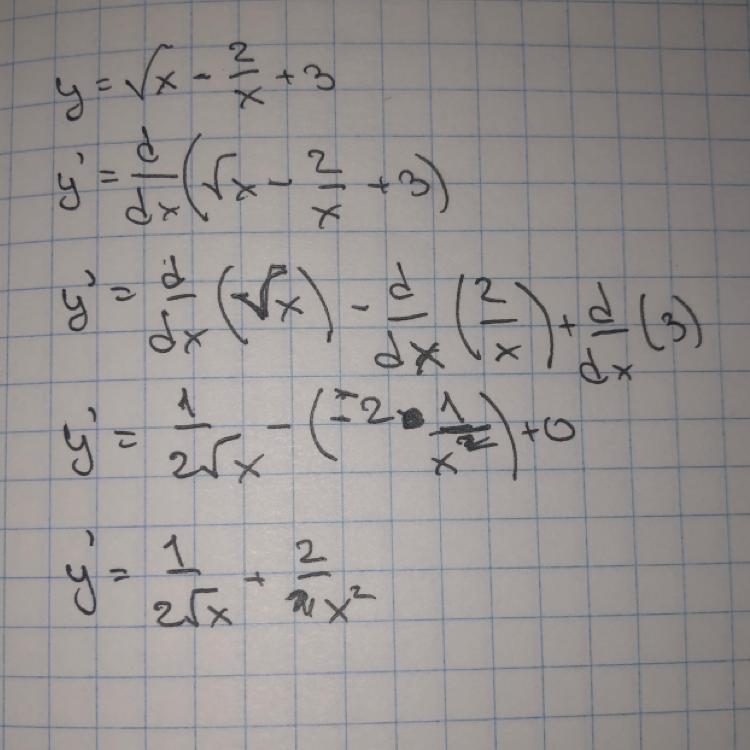 y = √x - 2/x + 3
y' = d/dx (√x - 2/x + 3)
y' = d/dx (√x) - d/dx (2/x) + d/dx (3)
y' = 1/(2√x) - (-2 • 1/x²) + 0
y' = 1/(2√x) + 2/x²